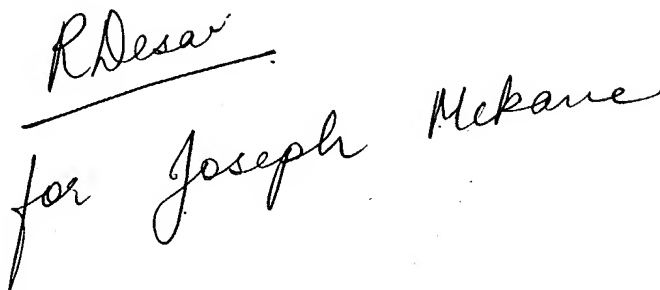 RDesai
for Joseph McKane